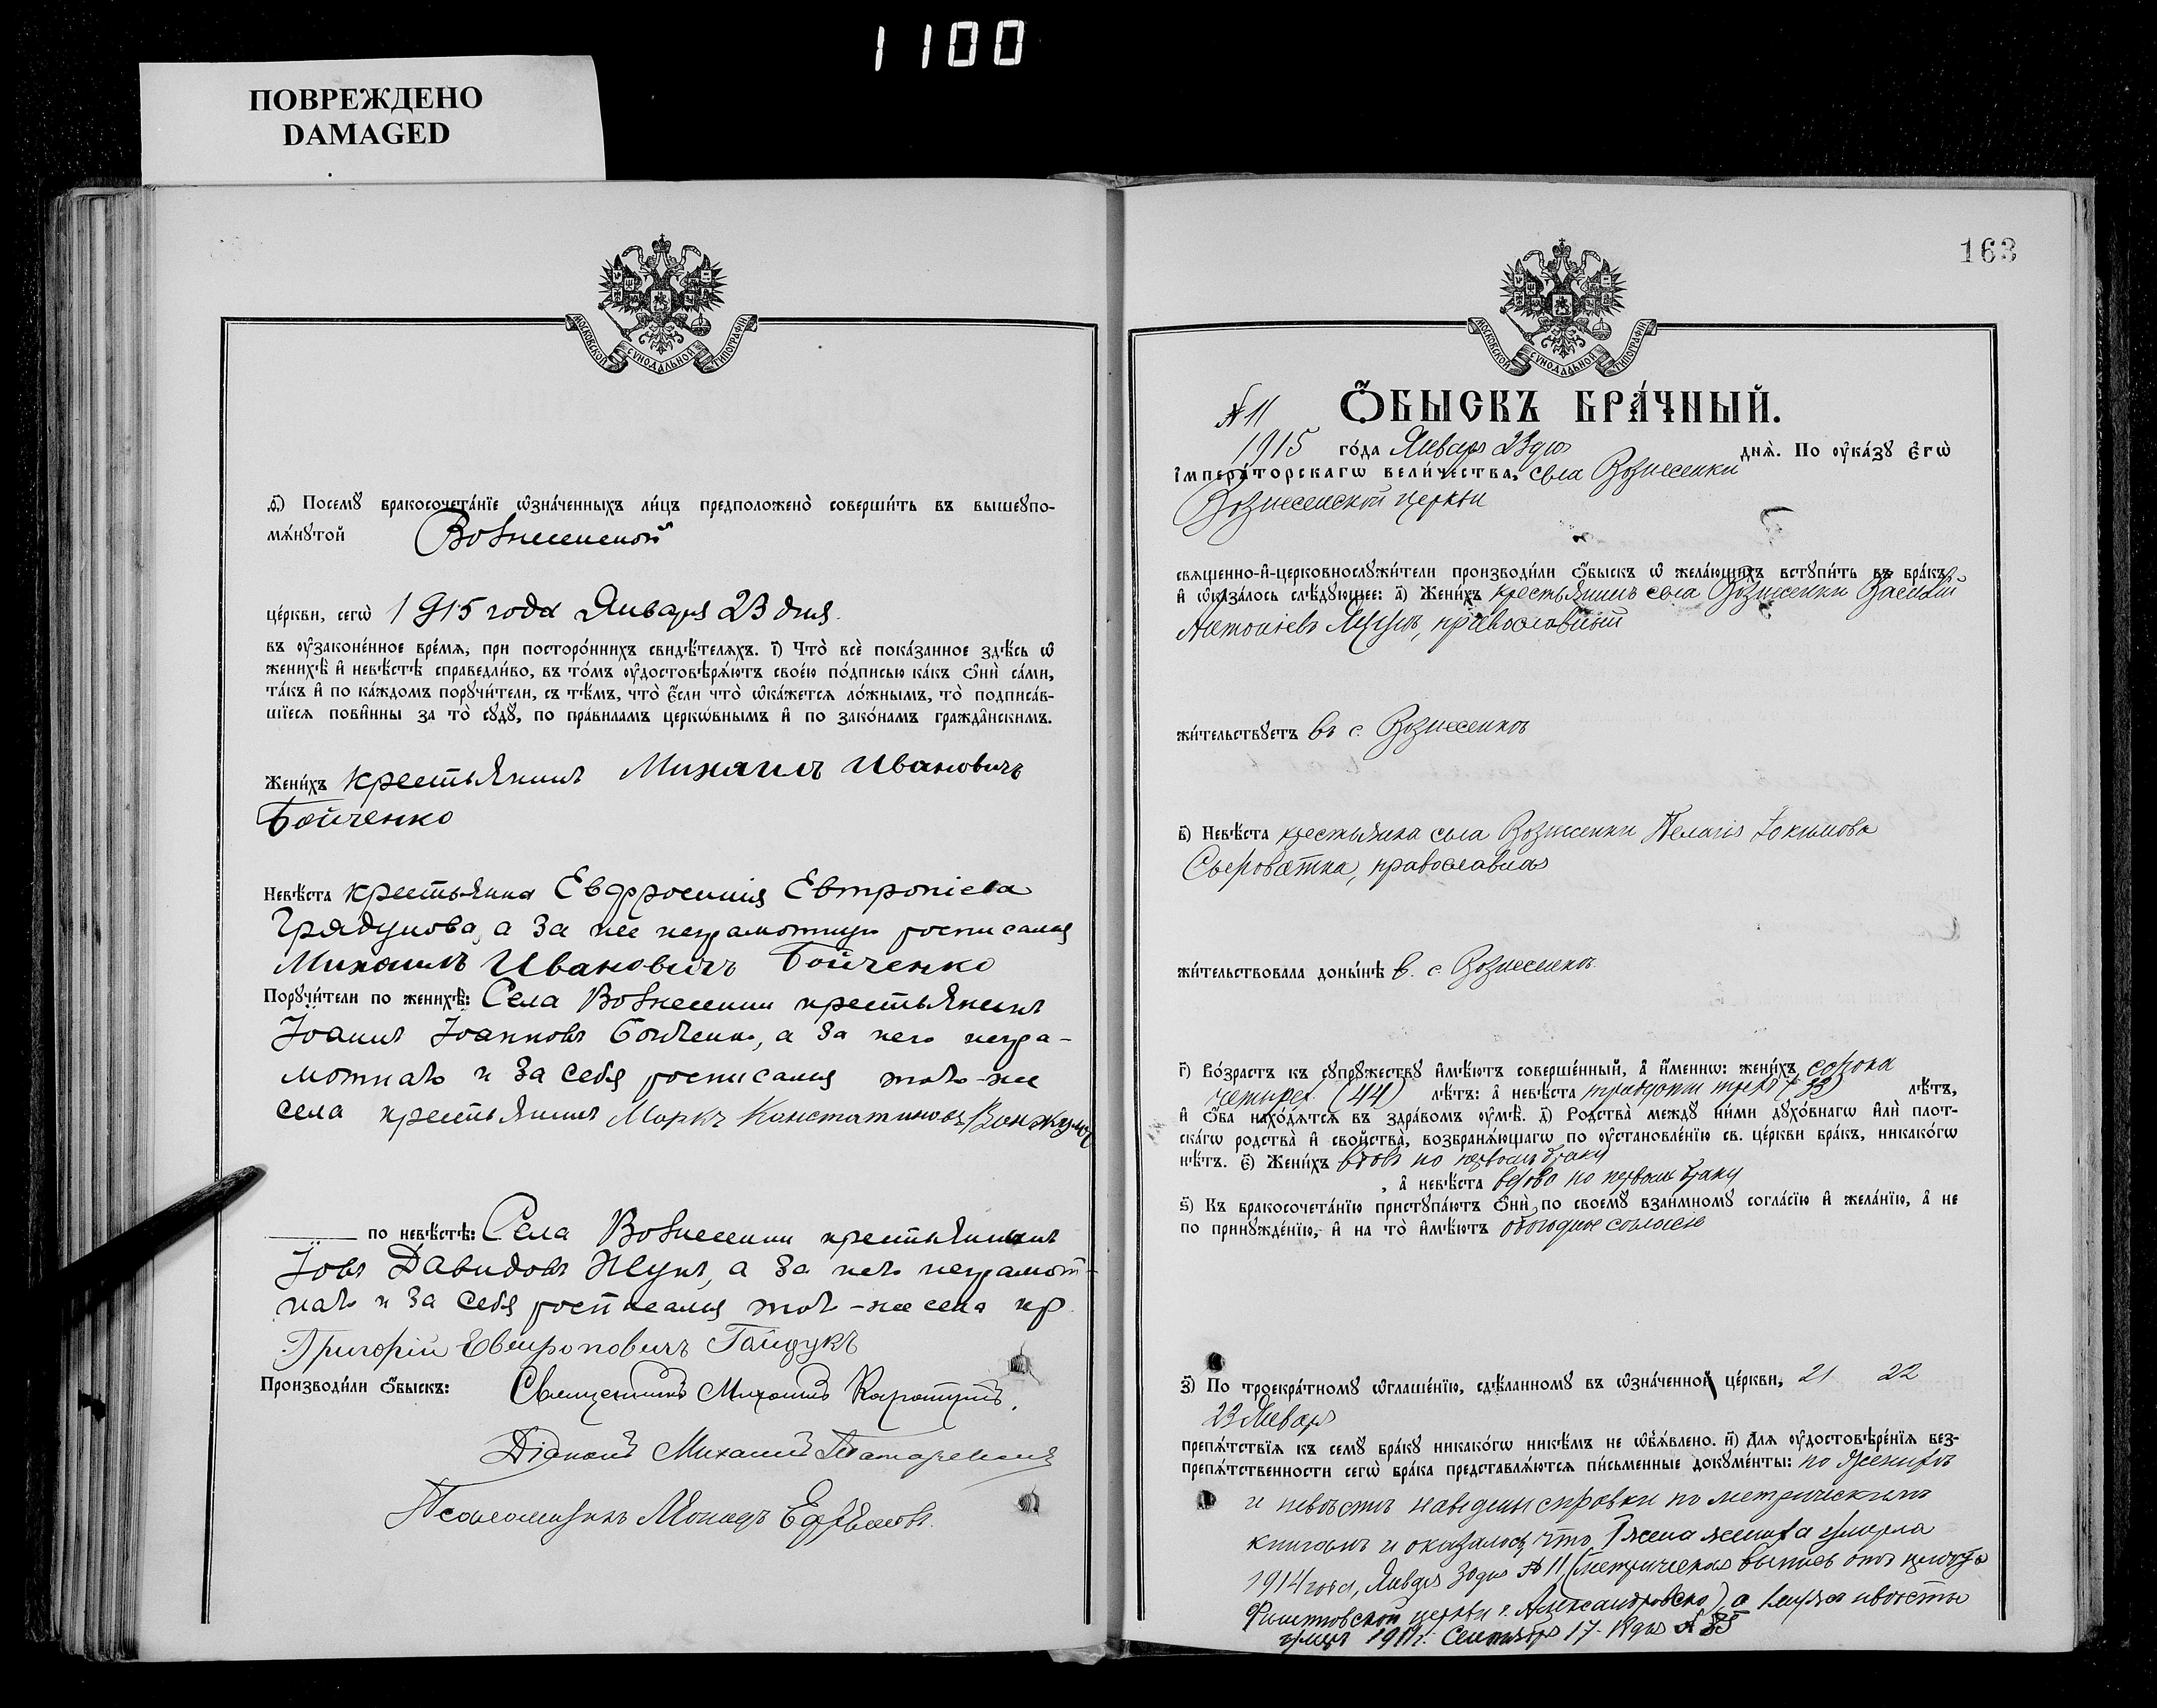 1100
ПОВРЕЖДЕНО
DAMAGED
МОСКОВСКОЙ СѴНОДАЛЬНОЙ ТИПОГРАФІИ
ѳ҃) Посемꙋ бракосочета́нїе ѡ҆зна́ченныхъ ли́цъ предположено̀ соверши́ть въ вышеꙋпо-
мѧ́нꙋтой Вознесенской
це́ркви, сегѡ̀ 1915 года Января 23 дня.
въ ᲂу҆законе́нное вре́мѧ, при посторо́ннихъ свидѣ́телѧхъ. і҃) Что̀ всѐ пока́занное здѣ́сь ѡ҆
женихѣ̀ и҆ невѣ́стѣ справедли́во, въ то́мъ ᲂу҆достовѣрѧ́ютъ свое́ю по́дписью ка́къ ѻ҆нѝ са́ми,
та́къ и҆ по ка́ждомъ порꙋчи́тели, съ тѣ́мъ, что̀ є҆́сли что̀ ѡ҆ка́жетсѧ ло́жнымъ, то̀ подписа́в-
шїесѧ пови́нны за то̀ сꙋдꙋ̀, по пра́виламъ церко́внымъ и҆ по зако́намъ гражда́нскимъ.
Жени́хъ крестьянинъ Михаилъ Ивановичъ
Бойченко
Невѣ́ста крестьянка Евфросинія Евтропіева
Грядунова, а за нее неграмотную росписался
Михаилъ Ивановичъ Бойченко
Порꙋчи́тели по женихѣ̀: Села Вознесенки крестьянинъ
Іоаннъ Іоанновъ Бойченко, а за него негра-
мотнаго и за себя росписался того-же
села крестьянинъ Маркъ Констатиновъ
по невѣ́стѣ: Села Вознесенки крестьянинъ
Іовъ Давидовъ Жукъ, а за него неграмот-
наго и за себя росписался того-же села кр.
Григорій Евтроповичъ Гайдукъ
Производи́ли ѻ҆́быскъ: Священникъ Михаилъ
Діаконъ Михаилъ
Псаломщикъ Ефремовъ.
163
МОСКОВСКОЙ СѴНОДАЛЬНОЙ ТИПОГРАФІИ
№ 11 Ѻ҆́БЫСКЪ БРА́ЧНЫЙ.
1915 го́да Января 23 дня днѧ̀. По ᲂу҆ка́зꙋ є҆гѡ̀
і҆мпера́торскагѡ вели́чества, села Вознесенки
Вознесенской церкви
свѧще́нно-и҆-церковнослꙋжи́тели производи́ли ѻ҆́быскъ ѡ҆ жела́ющихъ встꙋпи́ть въ бра́къ,
и҆ ѡ҆каза́лось слѣ́дꙋющее: а҃) Жени́хъ крестьянинъ села Вознесенки Василій
Антоніевъ православный
жи́тельствꙋетъ въ с. Вознесенкѣ
в҃) Невѣ́ста крестьянка села Вознесенки Пелагія Іокимова
Сыроватка, православная
жи́тельствовала доны́нѣ в. с. Вознесенкѣ.
г҃) Во́зрастъ къ сꙋпрꙋ́жествꙋ и҆мѣ́ютъ соверше́нный, а҆ и҆́менню: жени́хъ сорока
четырех (44) лѣ́тъ: а҆ невѣ́ста тридцати трех (33) лѣ́тъ,
и҆ ѻ҆́ба нахо́дѧтсѧ въ здра́вомъ ᲂу҆мѣ̀. д҃) Родства̀ ме́ждꙋ ни́ми дꙋхо́внагѡ и҆лѝ плот-
ска́гѡ родства̀ и҆ сво́йства, возбранѧ́ющагѡ по ᲂу҆становле́нїю св. це́ркви бра́къ, никако́гѡ
нѣ́тъ. є҃) Жени́хъ вдовъ по первомъ браку
, а҆ невѣ́ста вдова по первомъ браку
ѕ҃) Къ бракосочета́нїю пристꙋпа́ютъ ѻ҆нѝ по своемꙋ̀ взаи́мномꙋ согла́сїю и҆ жела́нїю, а҆ не
по принꙋжде́нїю, и҆ на то̀ и҆мѣ́ютъ обоюдное согласіе
з҃) По троекра́тномꙋ ѡ҆глаше́нїю, сдѣ́ланномꙋ въ ѡ҆зна́ченной це́ркви, 21 22
23 Января
препѧ́тствїѧ къ семꙋ̀ бра́кꙋ никако́гѡ никѣ́мъ не ѡ҆б̾ѧ́влено. и҃) Для ᲂу҆достовѣре́нїѧ без-
препѧ́тственности сегѡ̀ бра́ка представлѧ́ютсѧ пи́сьменные докꙋме́нты: по женихѣ
и невѣстѣ наведены справки по метрическимъ
книгамъ и оказалось, что жена жениха умерла
1914 года, Января 30 дня № 11 (метрическая выпись отъ
церкви г. Александровска), а невѣсты
умеръ 1911 г. Сентября 17 дня № 35